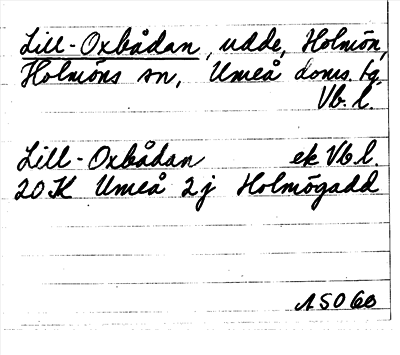 Lill-Oxbådan, udde, Holmön,
Holmöns sn, Umeå doms. tg,
Vb. l.
Lill-Oxbådan ek Vb l.
20 K Umeå 2 j Holmögadd
ASO 60